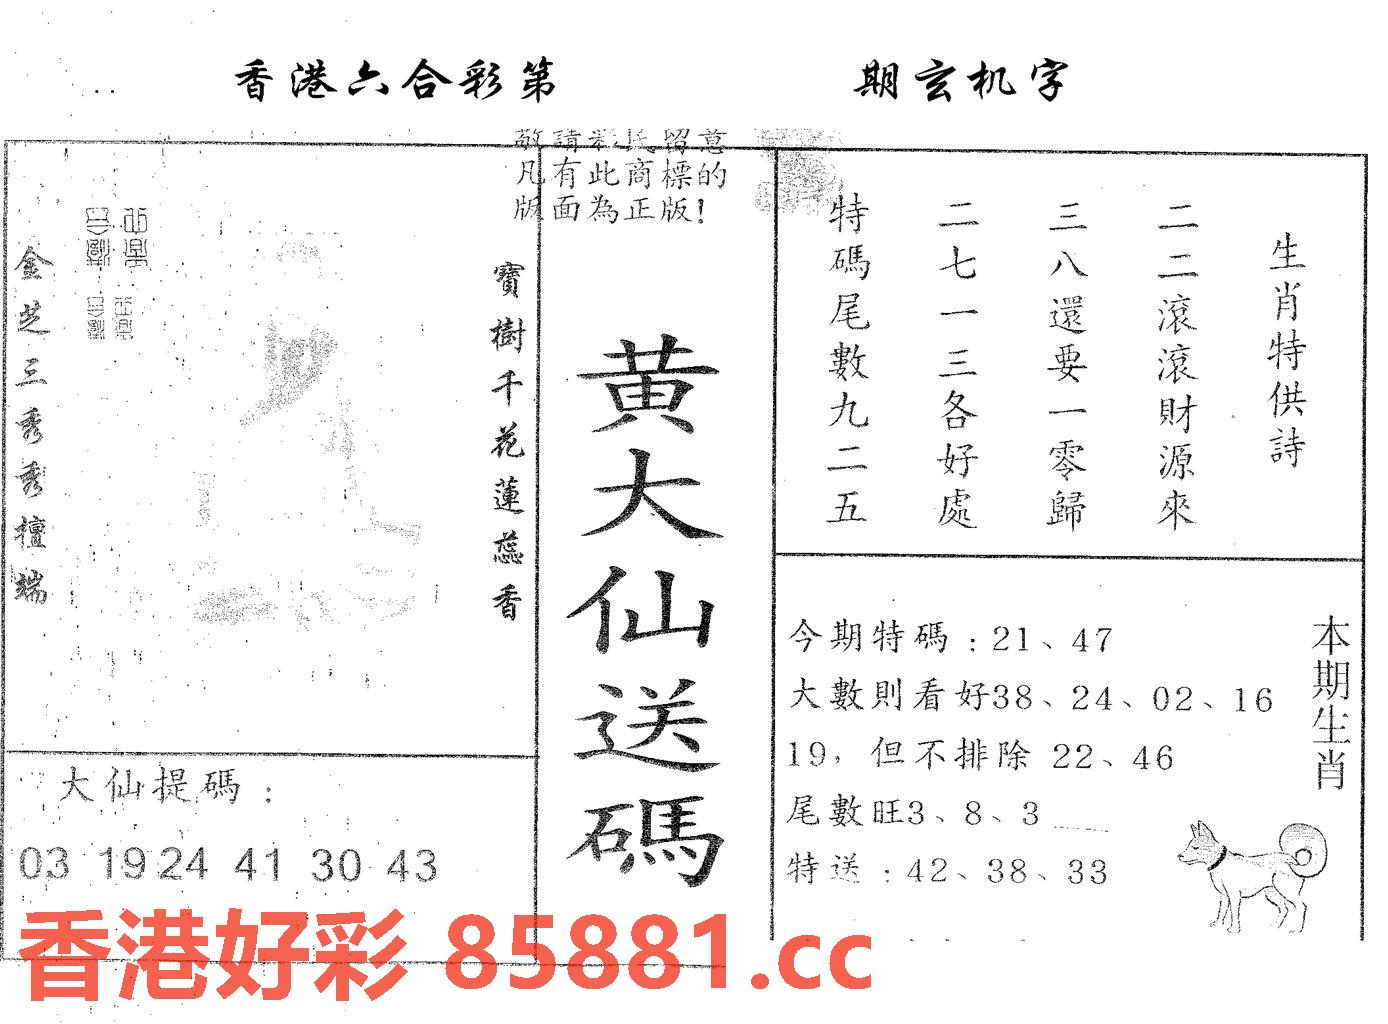 香港六合彩第 期玄机字
敬請彩民留意
凡有此商標的
版面為正版!
金芝三秀秀檀端
寶樹千花蓮蕊香
黄大仙送碼
生肖特供詩
二二滾滾財源來
三八還要一零歸
二七一三各好處
特碼尾數九二五
大仙提碼：
03 19 24 41 30 43
今期特碼：21、47
大數則看好38、24、02、16
19，但不排除 22、46
尾數旺3、8、3
特送：42、38、33
本期生肖
香港好彩 85881.cc